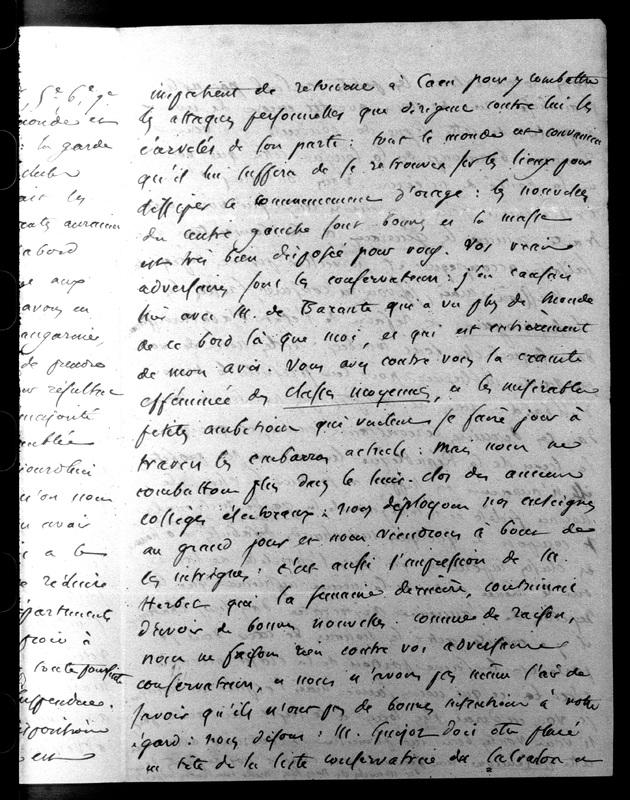 5e 6e 7e
monde est
la garde
les
auraient
abord
aux
avons eu
Changarnier,
de prendre
résultat
majorité
aujourd'hui
qu'on nous
avoir
a le
réduire
départements
froid à
toute pour cette
suspendue.
dispositions
est
impatient de retourner à Caen pour y combattre
les attaques personnelles que dirigent contre lui les
écervelés de son parti : tout le monde est convaincu
qu'il lui suffira de se retrouver sur les lieux pour
dissiper ce commencement d'orage : les nouvelles
du centre gauche sont bonnes et la masse
est très bien disposée pour vous. Vos vrais
adversaires sont les conservateurs : j'en causais
hier avec M. de Barante qui a vu plus de monde
de ce bord là que moi, et qui est entièrement
de mon avis. Vous avez contre vous la crainte
efféminée des classes moyennes, et les misérables
petites ambitions qui veulent se faire jour à
travers les embarras actuels : mais nous ne
combattons plus dans le huis-clos des anciens
collèges électoraux : nous déployons nos enseignes
au grand jour et nous viendrons à bout de
les intrigues : c'est aussi l'impression de M.
Herbet qui la semaine dernière, continuait
d'avoir de bonnes nouvelles. comme de raison,
nous ne faisons rien contre vos adversaires
conservateurs, et nous n'avons pas même l'air de
savoir qu'ils n'ont pas de bonnes intentions à votre
égard : nous disons : M. Guizot doit être placé
en tête de la liste conservatrice du Calvados et